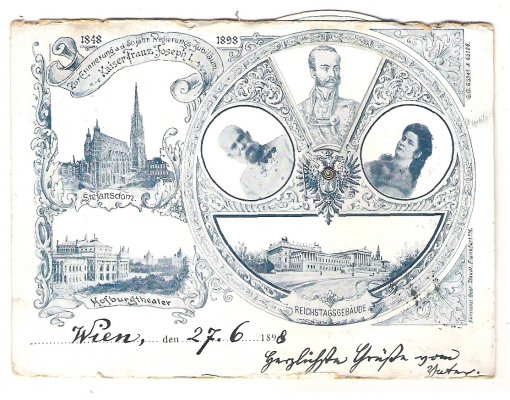 1848
1898
Zur Erinnerung a.d. 50jähr. Regierungs-Jubiläum
Kaiser Franz Joseph I.
Stefansdom.
Hofburgtheater
REICHSTAGSGEBÄUDE
Wien, den 27. 6. 1898
Herzlichste Grüße vom
Vater.